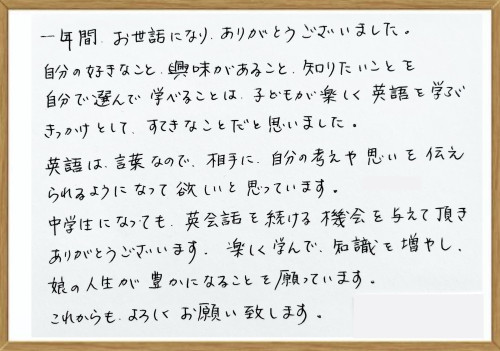 一年間、お世話になり、ありがとうございました。
自分の好きなこと、興味があること、知りたいことを
自分で選んで学べることは、子どもが楽しく英語を学ぶ
きっかけとして、すてきなことだと思いました。
英語は、言葉なので、相手に、自分の考えや思いを伝え
られるようになって欲しいと思っています。
中学生になっても、英会話を続ける機会を与えて頂き
ありがとうございます。楽しく学んで、知識を増やし、
娘の人生が豊かになることを願っています。
これからも、よろしくお願い致します。